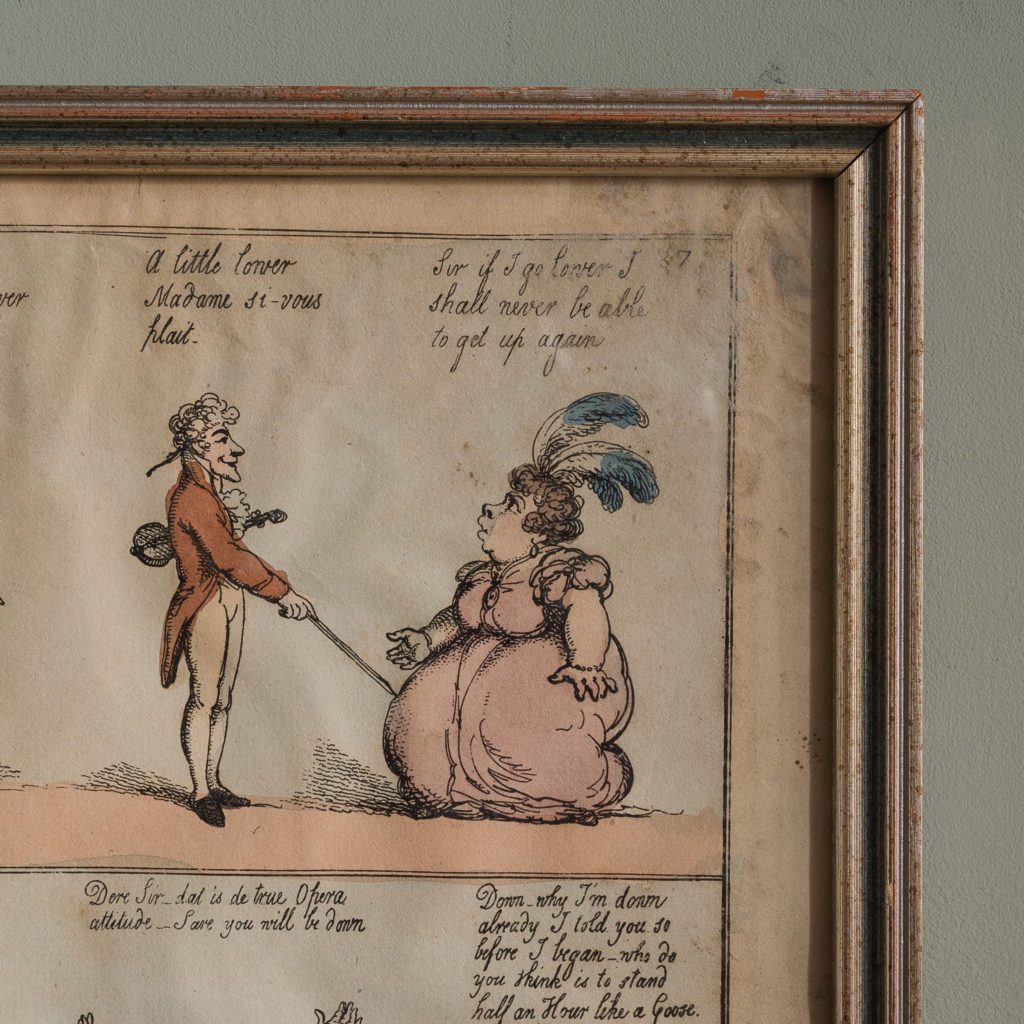 ver
A little lower
Madame si-vous
plait-
Sir if I go lower I
shall never be able
to get up again
37
Dere Sir_dat is de true Opera
attitude _ Sare you will be down
Down_why I'm down
already I told you so
before I began_who do
you think is to stand
half an Hour like a Goose.